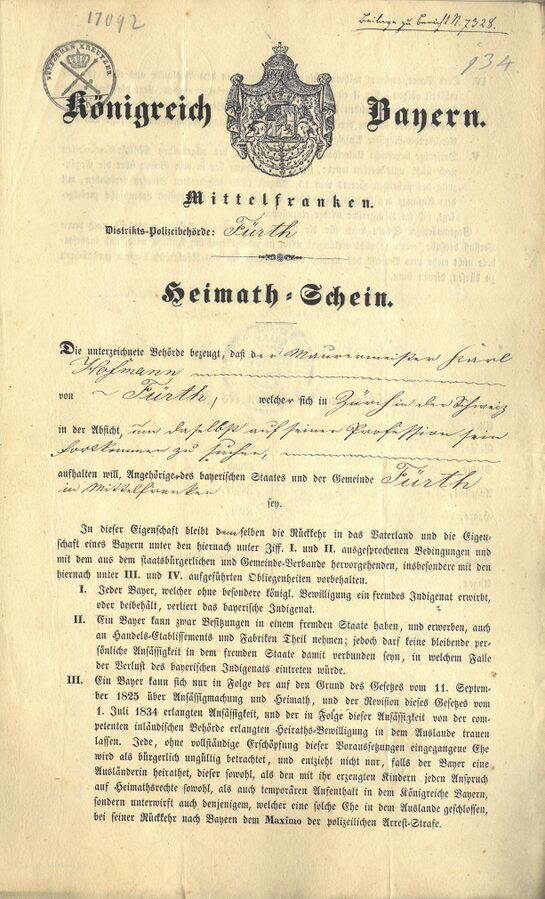 17092
Beilage zu Bericht N. 7328.
134
KREUTZER
Königreich Bayern.
Mittelfranken.
Distrikts-Polizeibehörde: Fürth
Heimath-Schein.
Die unterzeichnete Behörde bezeugt, daß der Maurermeister Karl
Hofmann
von Fürth, welcher sich in Zürch in der Schweiz
in der Absicht, um daselbst auf seiner Profession sein
Fortkommen zu suchen,
aufhalten will, Angehöriger des bayerischen Staates und der Gemeinde Fürth
in Mittelfranken
sey.
In dieser Eigenschaft bleibt demselben die Rückkehr in das Vaterland und die Eigen-
schaft eines Bayern unter den hiernach unter Ziff. I. und II. ausgesprochenen Bedingungen und
mit dem aus dem staatsbürgerlichen und Gemeinde-Verbande hervorgehenden, insbesondere mit den
hiernach unter III. und IV. aufgeführten Obliegenheiten vorbehalten.
I. Jeder Bayer, welcher ohne besondere königl. Bewilligung ein fremdes Indigenat erwirbt,
oder beibehält, verliert das bayerische Indigenat.
II. Ein Bayer kann zwar Besitzungen in einem fremden Staate haben, und erwerben, auch
an Handels-Etablissements und Fabriken Theil nehmen; jedoch darf keine bleibende per-
sönliche Ansässigkeit in dem fremden Staate damit verbunden seyn, in welchem Falle
der Verlust des bayerischen Indigenats eintreten würde.
III. Ein Bayer kann sich nur in Folge der auf den Grund des Gesetzes vom 11. Septem-
ber 1825 über Ansässigmachung und Heimath, und der Revision dieses Gesetzes vom
1. Juli 1834 erlangten Ansässigkeit, und der in Folge dieser Ansässigkeit von der com-
petenten inländischen Behörde erlangten Heiraths-Bewilligung in dem Auslande trauen
lassen. Jede, ohne vollständige Erschöpfung dieser Voraussetzungen eingegangene Ehe
wird als bürgerlich ungültig betrachtet, und entzieht nicht nur, falls der Bayer eine
Ausländerin heirathet, dieser sowohl, als den mit ihr erzeugten Kindern jeden Anspruch
auf Heimathsrechte sowohl, als auch temporären Aufenthalt in dem Königreiche Bayern,
sondern unterwirft auch denjenigen, welcher eine solche Ehe in dem Auslande geschlossen,
bei seiner Rückkehr nach Bayern dem Maximo der polizeilichen Arrest-Strafe.